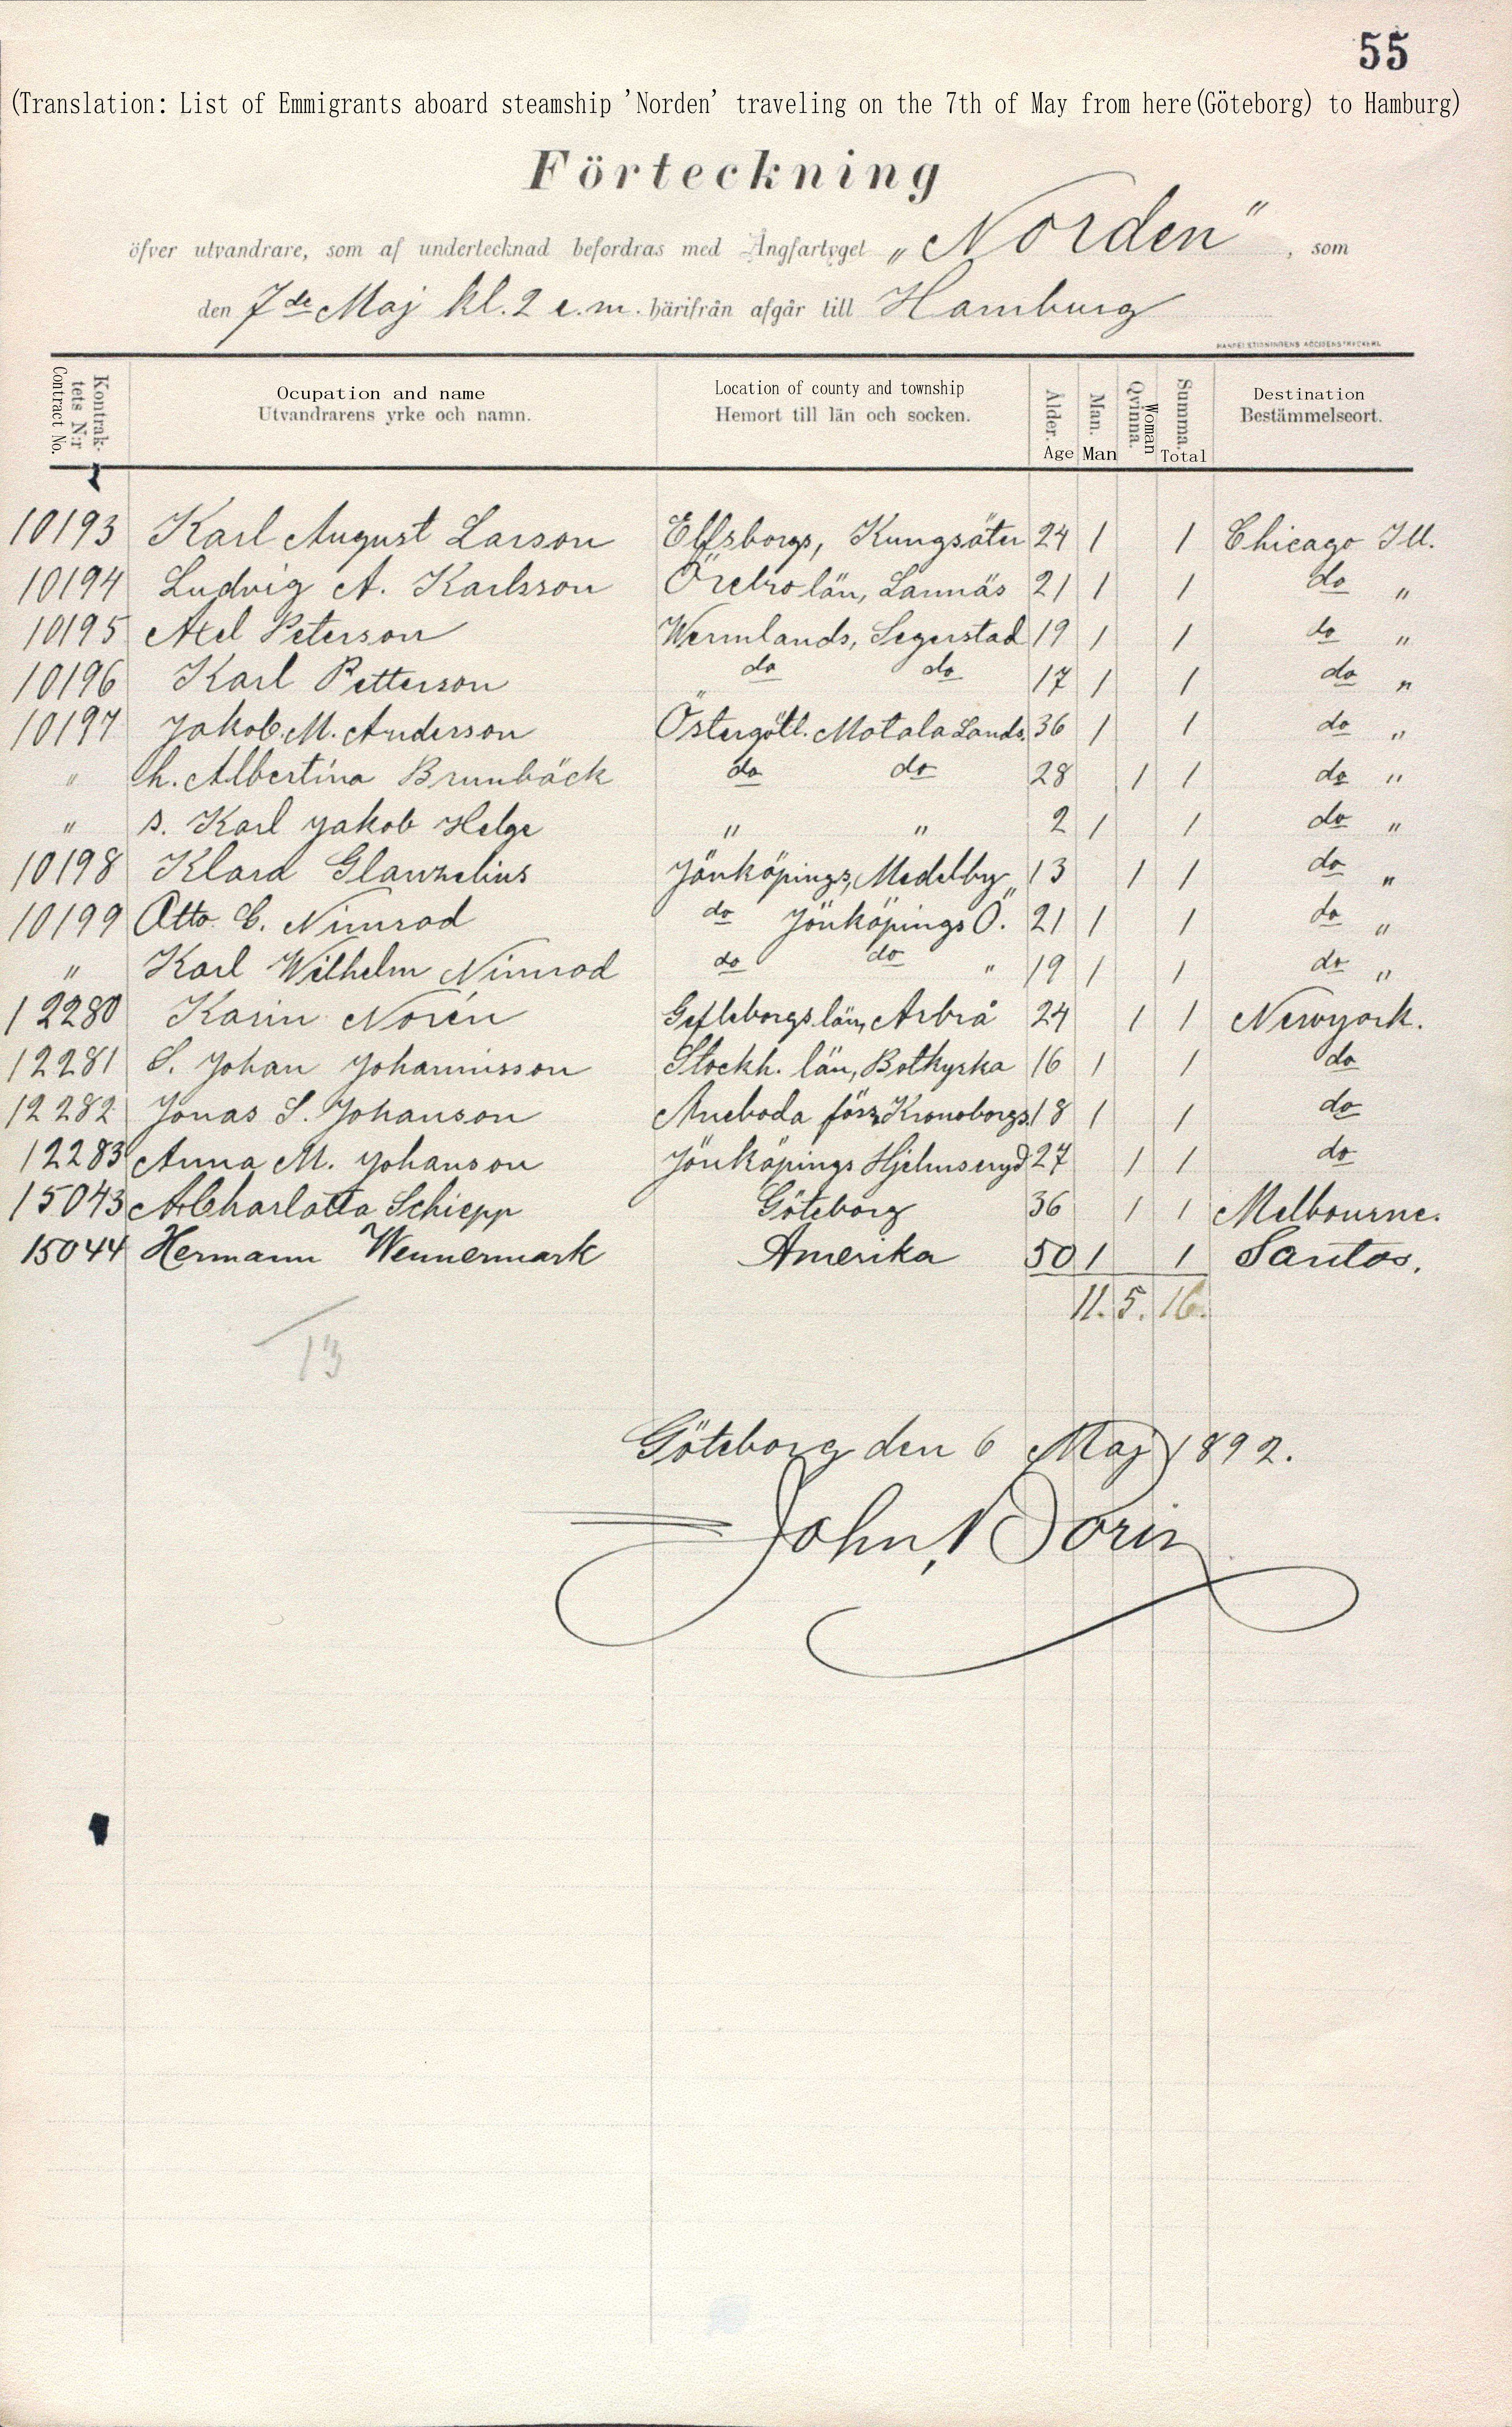 55
(Translation: List of Emmigrants aboard steamship 'Norden' traveling on the 7th of May from here(Göteborg) to Hamburg)
Förteckning
öfver utvandrare, som af undertecknad befordras med Ångfartyget „Norden“, som
den 7de Maj kl. 2 e.m. härifrån afgår till Hamburg
Kontrak-tets N:r Contract No. Ocupation and name Utvandrarens yrke och namn. Location of county and township Hemort till län och socken. Ålder. Age Man. Man Qvinna. Woman Summa. Total Destination Bestämmelseort.
10193 Karl August Larson Elfsborgs, Kungsäter 24 1 1 Chicago Ill.
10194 Ludvig A. Karlsson Örebro län, Lännäs 21 1 1 do "
10195 Axel Peterson Wermlands, Segerstad 19 1 1 do "
10196 Karl Petterson do do 17 1 1 do "
10197 Jakob. M. Anderson Östergötl. Motala Lands. 36 1 1 do "
" h. Albertina Brunbäck do do 28 1 1 do "
" s. Karl Jakob Helge " " 2 1 1 do "
10198 Klara Jönköpings, Medelby 13 1 1 do "
10199 Otto C. Nimrod do Jönköpings Ö. 21 1 1 do "
" Karl Wilhelm Nimrod do do " 19 1 1 do "
12280 Karin Norén Gefleborgs län, Arbrå 24 1 1 Newyork.
12281 S. Johan Johannisson Stockh. län, Botkyrka 16 1 1 do
12282 Jonas S. Johanson Aneboda förs. Kronoborgs. 18 1 1 do
12283 Anna M. Johanson Jönköpings Hjelmseryd 27 1 1 do
15043 A Charlotta Schiepp Göteborg 36 1 1 Melbourne.
15044 Hermann Wennermark Amerika 50 1 1 Santos.
11. 5. 16.
13
Göteborg den 6 Maj 1892.
John